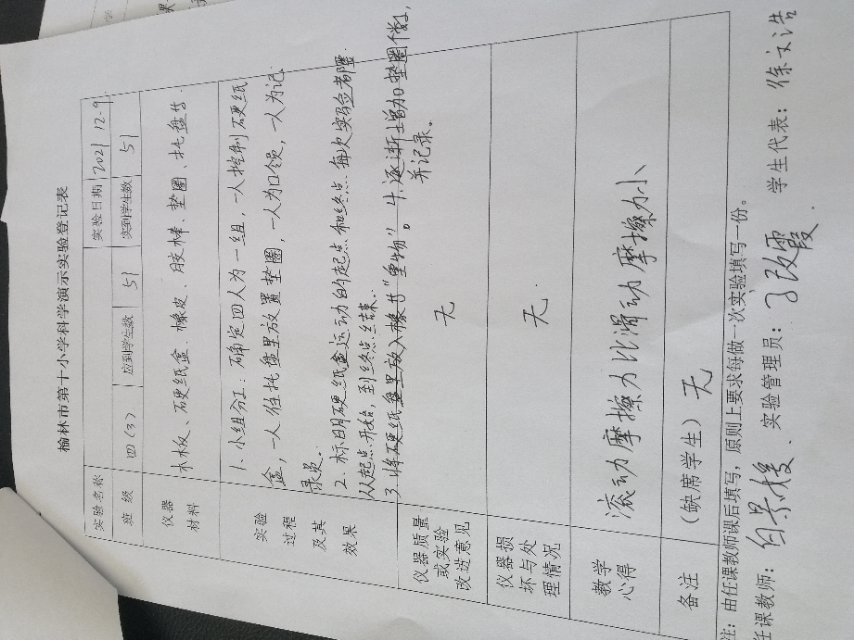 榆林市第十小学科学演示实验登记表
实验名称 实验日期 2021 12.9
班级 四(3) 应到学生数 51 实到学生数 51
仪器材料 木板、硬纸盒、橡皮、胶棒、垫圈、托盘等
实验过程及其效果
1.小组分工:确定四人为一组,一人控制硬纸
盒,一人往托盘里放置垫圈,一人为口令员,一人为记
录员。
2.标明硬纸盒运动的起点和终点.每次实验都要
从起点开始,到终点结束.
3.将硬纸盒里放入橡皮等“重物”。4.逐渐增加垫圈个数,
并记录。
仪器质量或实验改进意见 无
仪器损坏与处理情况 无.
教学心得 滚动摩擦力比滑动摩擦力小
备注 (缺席学生)无
注:由任课教师课后填写,原则上要求每做一次实验填写一份。
任课教师: 、实验管理员: 学生代表:徐文浩